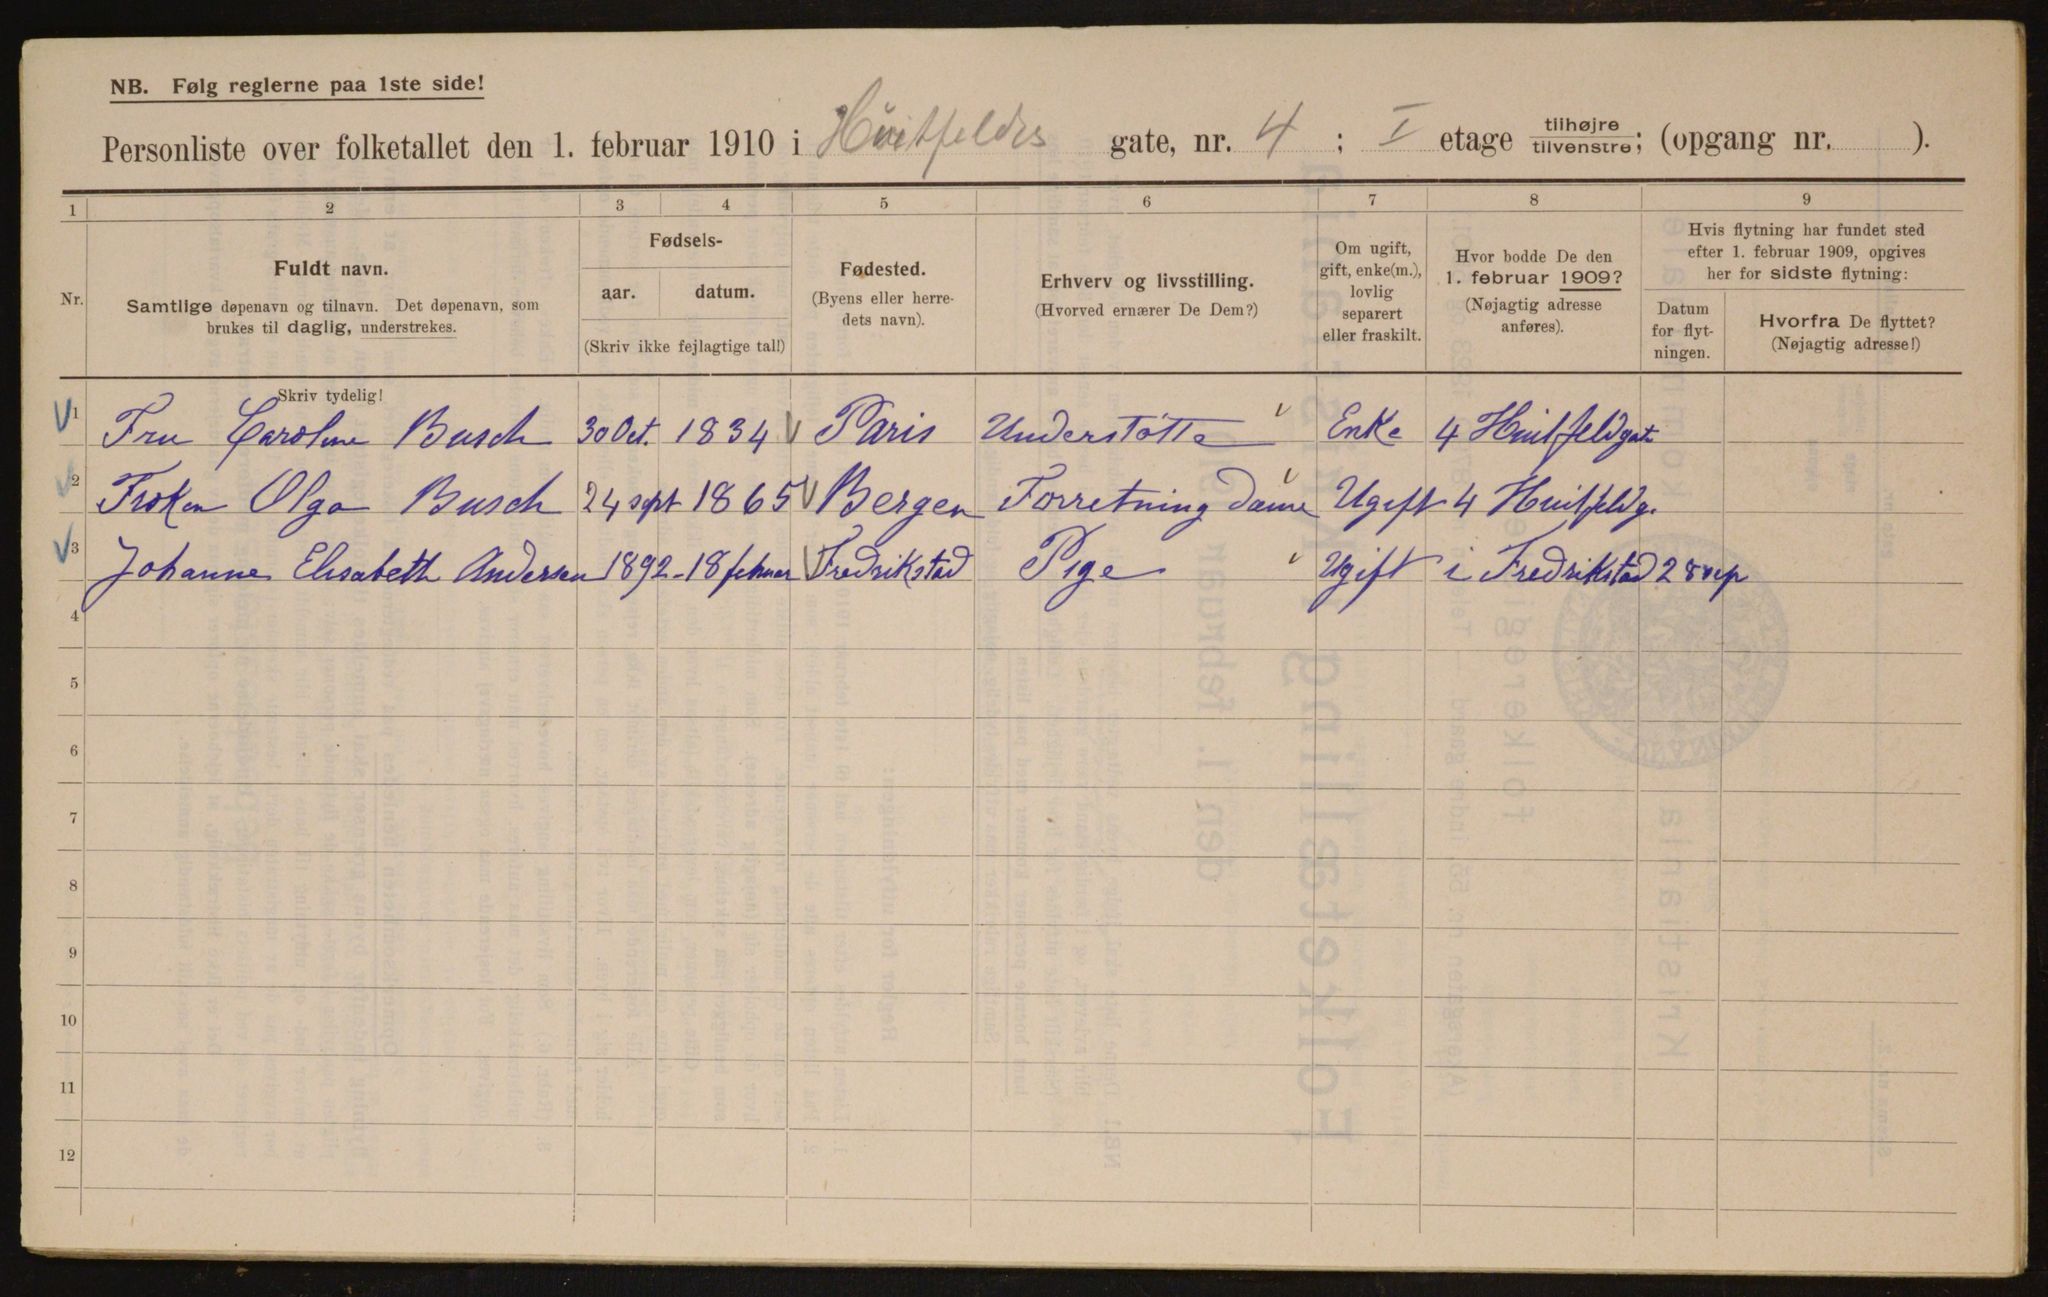 NB. Følg reglerne paa 1ste side!
Personliste over folketallet den 1. februar 1910 i Hvitfeldts gate, nr. 4 ; I etage tilhøjre tilvenstre; (opgang nr. ).
1 2 3 4 5 6 7 8 9
Nr.
Fuldt navn.
Samtlige døpenavn og tilnavn. Det døpenavn, som
brukes til daglig, understrekes.
Fødsels-
aar. datum.
(Skriv ikke fejlagtige tal!)
Fødested.
(Byens eller herre-
dets navn).
Erhverv og livsstilling.
(Hvorved ernærer De Dem?)
Om ugift,
gift, enke(m.),
lovlig
separert
eller fraskilt.
Hvor bodde De den
1. februar 1909?
(Nøjagtig adresse
anføres).
Hvis flytning har fundet sted
efter 1. februar 1909, opgives
her for sidste flytning:
Datum
for flyt-
ningen.
Hvorfra De flyttet?
(Nøjagtig adresse!)
Skriv tydelig!
1 Fru Caroline Busch 30 Oct. 1834 Paris Understøtte Enke 4 Huitfeldgate
2 Frøken Olga Busch 24 sept 1865 Bergen Forretning Dame Ugift 4 Huitfeldg.
3 Johanne Elisabeth Andersen 1892 - 18 februar Fredrikstad Pige Ugift i Fredrikstad 28 sep
4
5
6
7
8
9
10
11
12